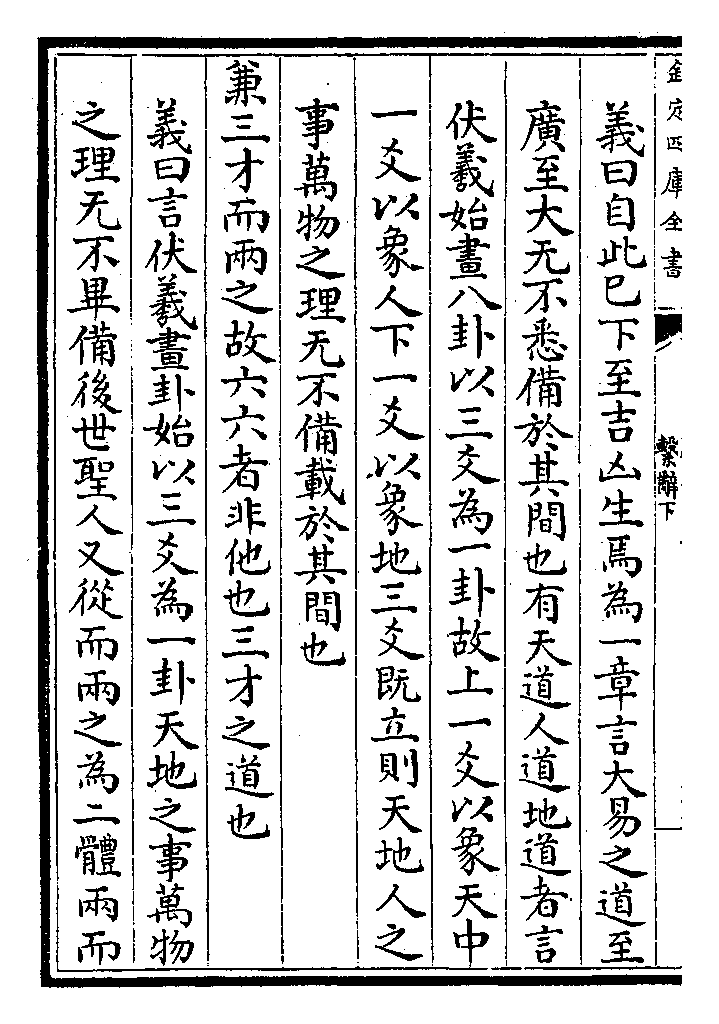 欽定四庫全書
繫辭下
義曰自此已下至吉凶生焉為一章言大易之道至
廣至大无不悉備於其間也有天道人道地道者言
伏羲始畫八卦以三爻為一卦故上一爻以象天中
一爻以象人下一爻以象地三爻既立則天地人之
事萬物之理无不備載於其間也
兼三才而兩之故六六者非他也三才之道也
義曰言伏羲畫卦始以三爻為一卦天地之事萬物
之理无不畢備後世聖人又從而兩之為二體兩而